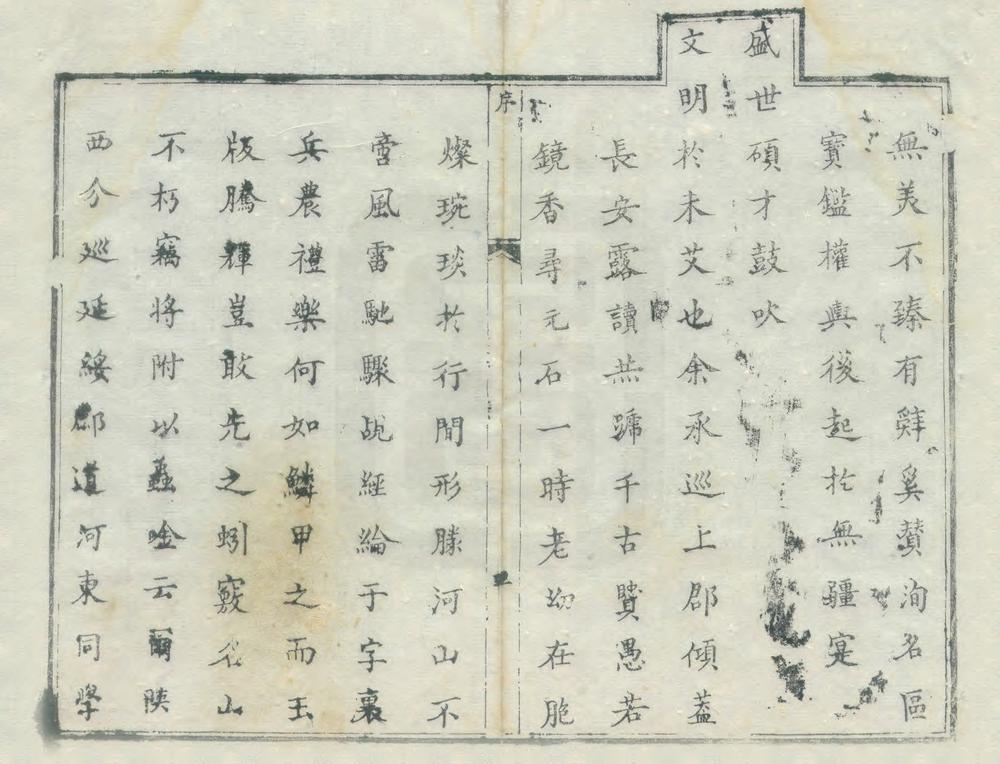 無美不臻有辭奚贊洵名區
寶鑑權輿後起於無疆寔
盛世碩才鼓吹
文明於未艾也余承巡上郡傾蓋
長安露讀燕蹏千古賢愚若
鏡香尋元石一時老幼在胞
序
燦琬琰於行間形勝河山不
啻風雷馳驟戡經綸于字裏
兵農禮樂何如鱗甲之而玉
版騰輝豈敢先之蚓竅名山
不朽竊將附以蟲唫云爾陝
西分巡延綏鄜道河東同學